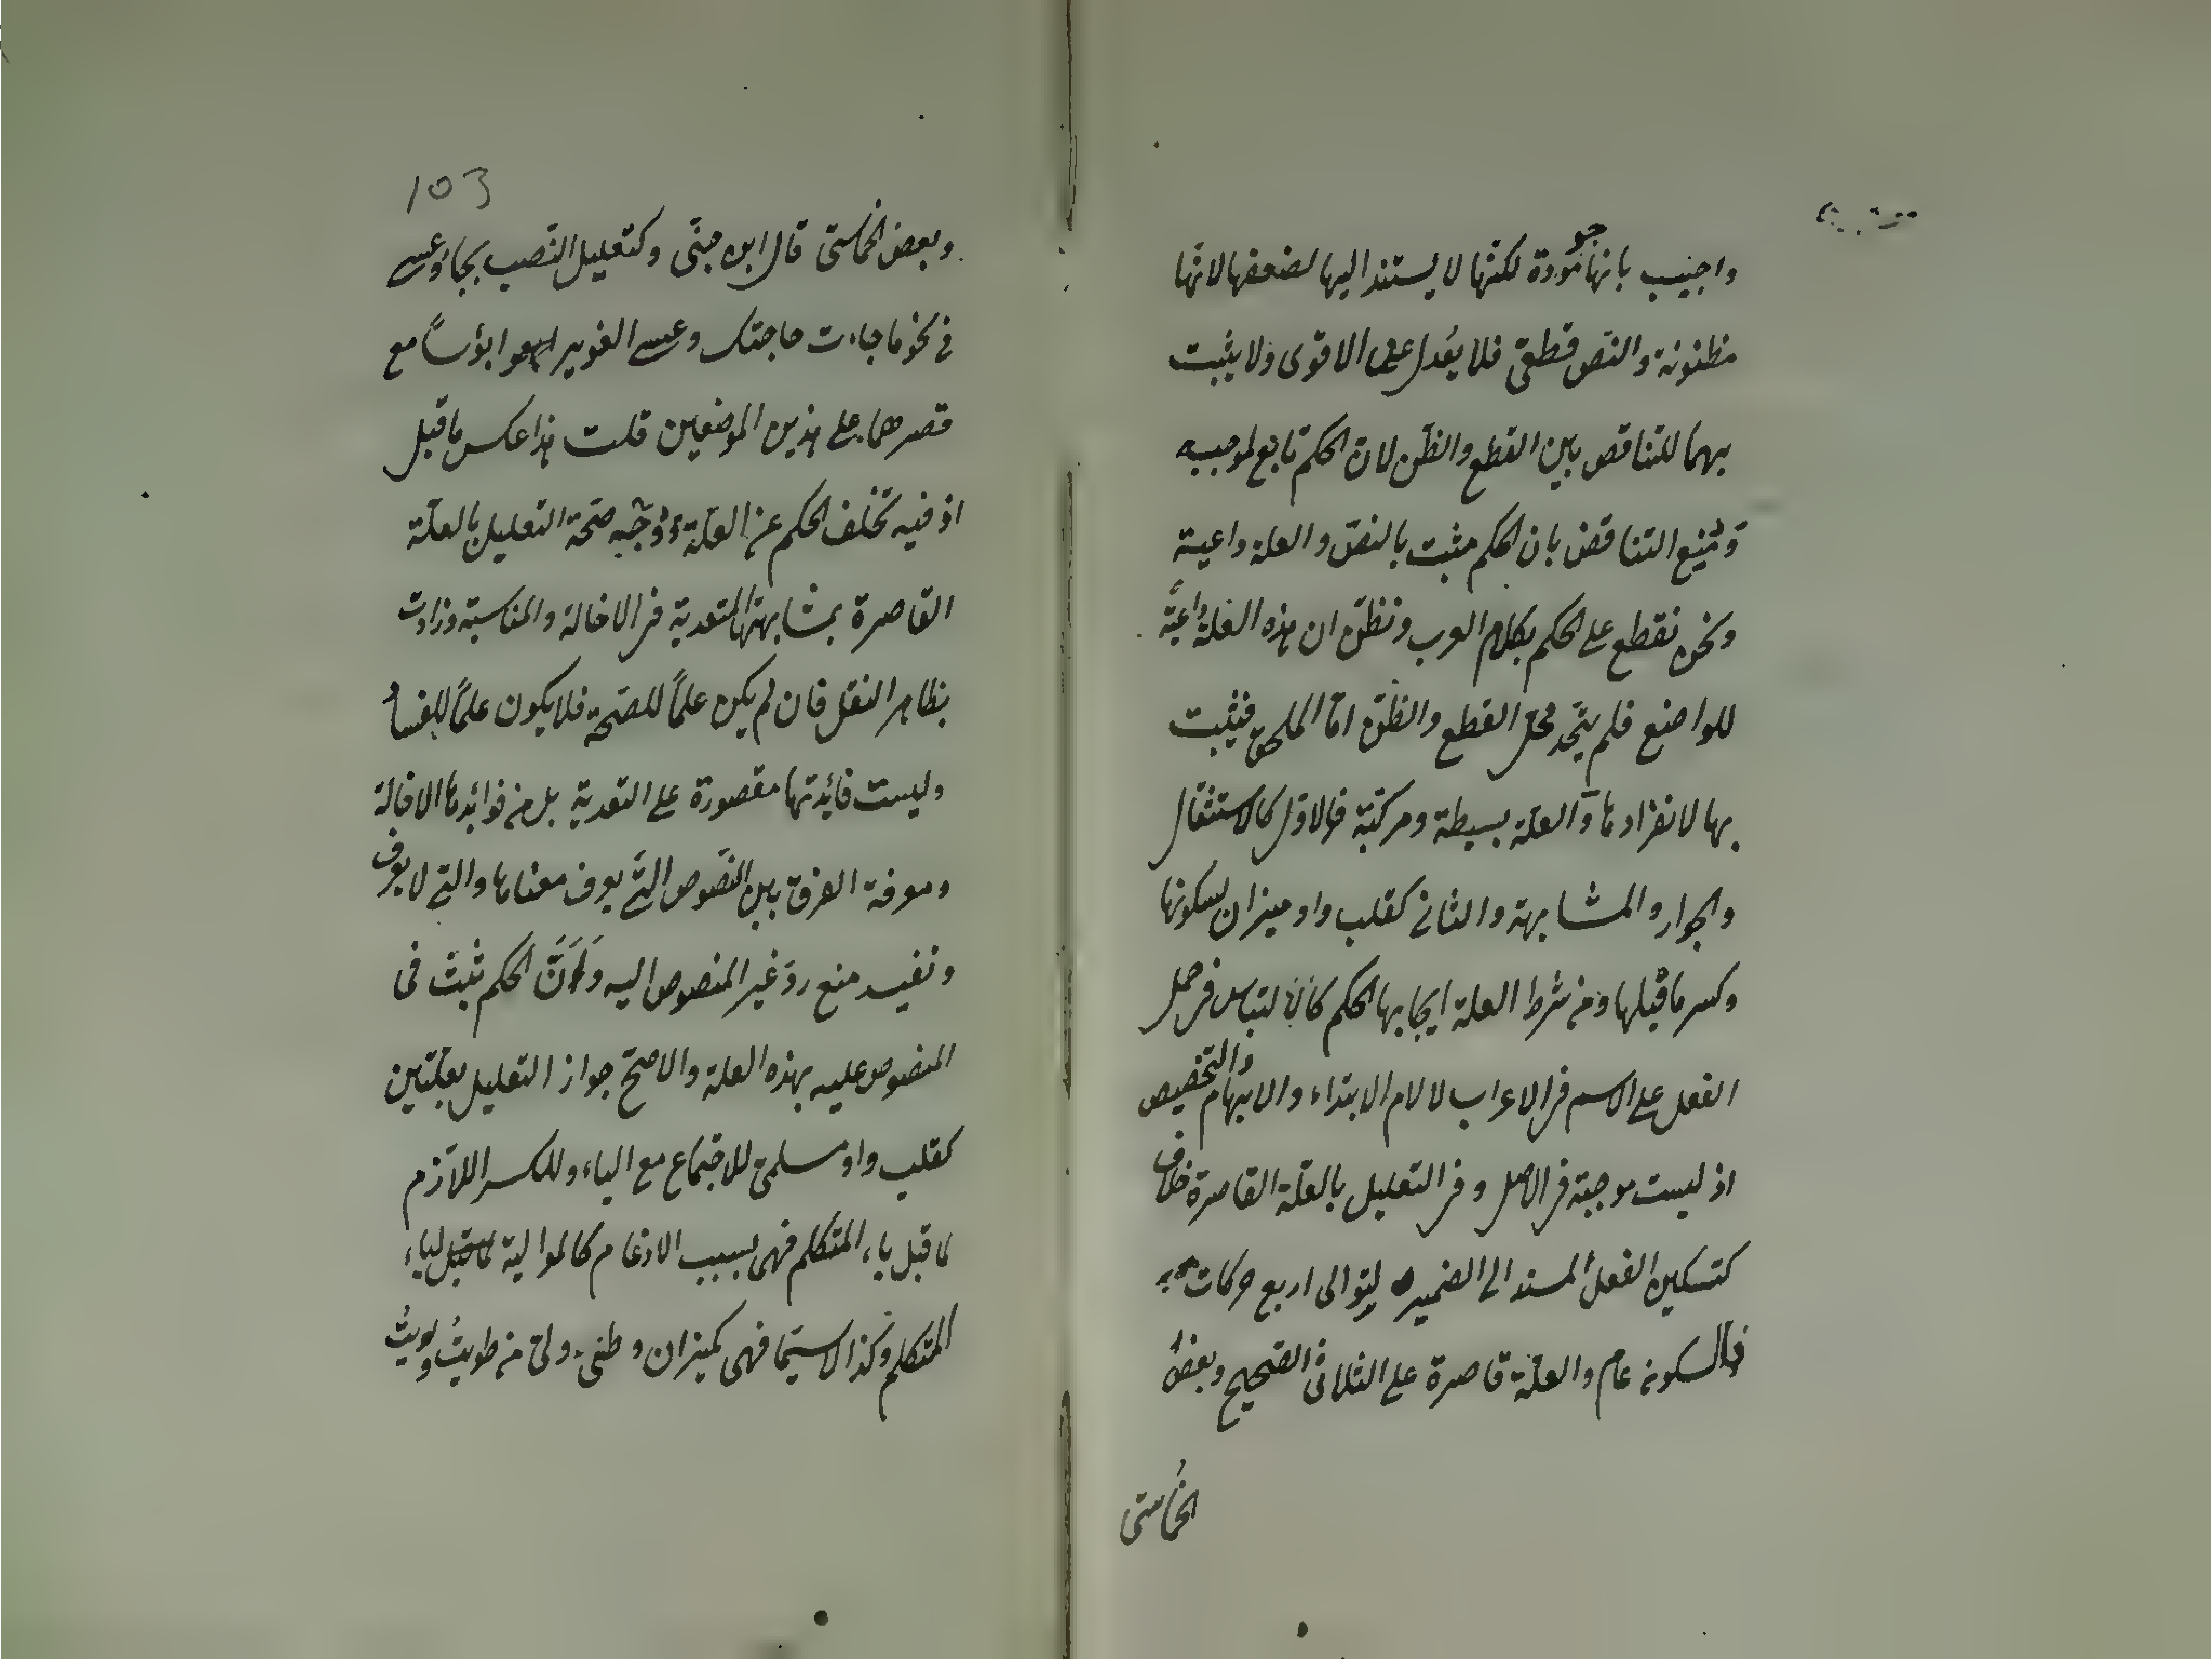 واجيب بانها موجودة لكنها لا يستند اليها لضعفها لانها
مظنونة والنص قطعى فلا يعدل عن الاقوى ولا يثبت
بهما للتناقص بين القطع والظن لان الحكم تابع لموجبه
ومُنِع التناقض بان الحكم مثبت بالنص والعلة داعية
ونحن نقطع على الحكم بكلام العرب ونظن ان هذه العلة داعية
للواضع فلم يتحد محل القطع والظن اما الملحق فيثبت
بها لانفرادها والعلة بسيطة ومركبة فالاول كالاستثقال
والجوار والمشابهة والثانى كقلب واو ميزان لسكونها
وكسر ما قبلها ومن شرط العلة ايجابها الحكم كالالتباس فى حمل
الفعل على الاسم فى الاعراب لا لام الابتداء والابهام والتخصيص
اذ ليست موجبة فى الاصل وفى التعليل بالعلة القاصرة خلاف
كتسكين الفعل المسند الى الضمير لتوالى اربع حركات
فالسكون عام والعلة قاصرة على الثلاثى الصحيح وبعض
الخماسى
103
وبعض الخماسى قال ابن جنى وكتعليل النصب بجاء وعسى
فى نحو ما جاءت حاجتك وعسى الغوير ابؤساً مع
قصرهما على هذين الموضعين قلت هذا عكس ما قبل
اذ فيه تخلف الحكم عن العلة ووُجّه صحة التعليل بالعلة
القاصرة بمشابهتها المتعدية فى الاخالة والمناسبة وزادت
بظاهر النقل فان لم يكن علماً للصحة فلا يكون علماً للفساد
وليست فائدتها مقصورة على التعدية بل من فوائدها الاخالة
ومعرفة الفرق بين النصوص التى يعرف معناها والتى لا يعرف
وتفيد منع ردّ غير المنصوص اليه ولأنّ الحكم ثبت فى
المنصوص عليه بهذه العلة والاصح جواز التعليل بعلتين
كقلب واو مسلمىّ للاجتماع مع الياء وللكسر اللازم
لما قبل ياء المتكلم فهى بسبب الادغام كالموالية لياء
المتكلم وكذا لاسيما فهى كميزان وطىّ ولىّ من طويتُ ولويتُ